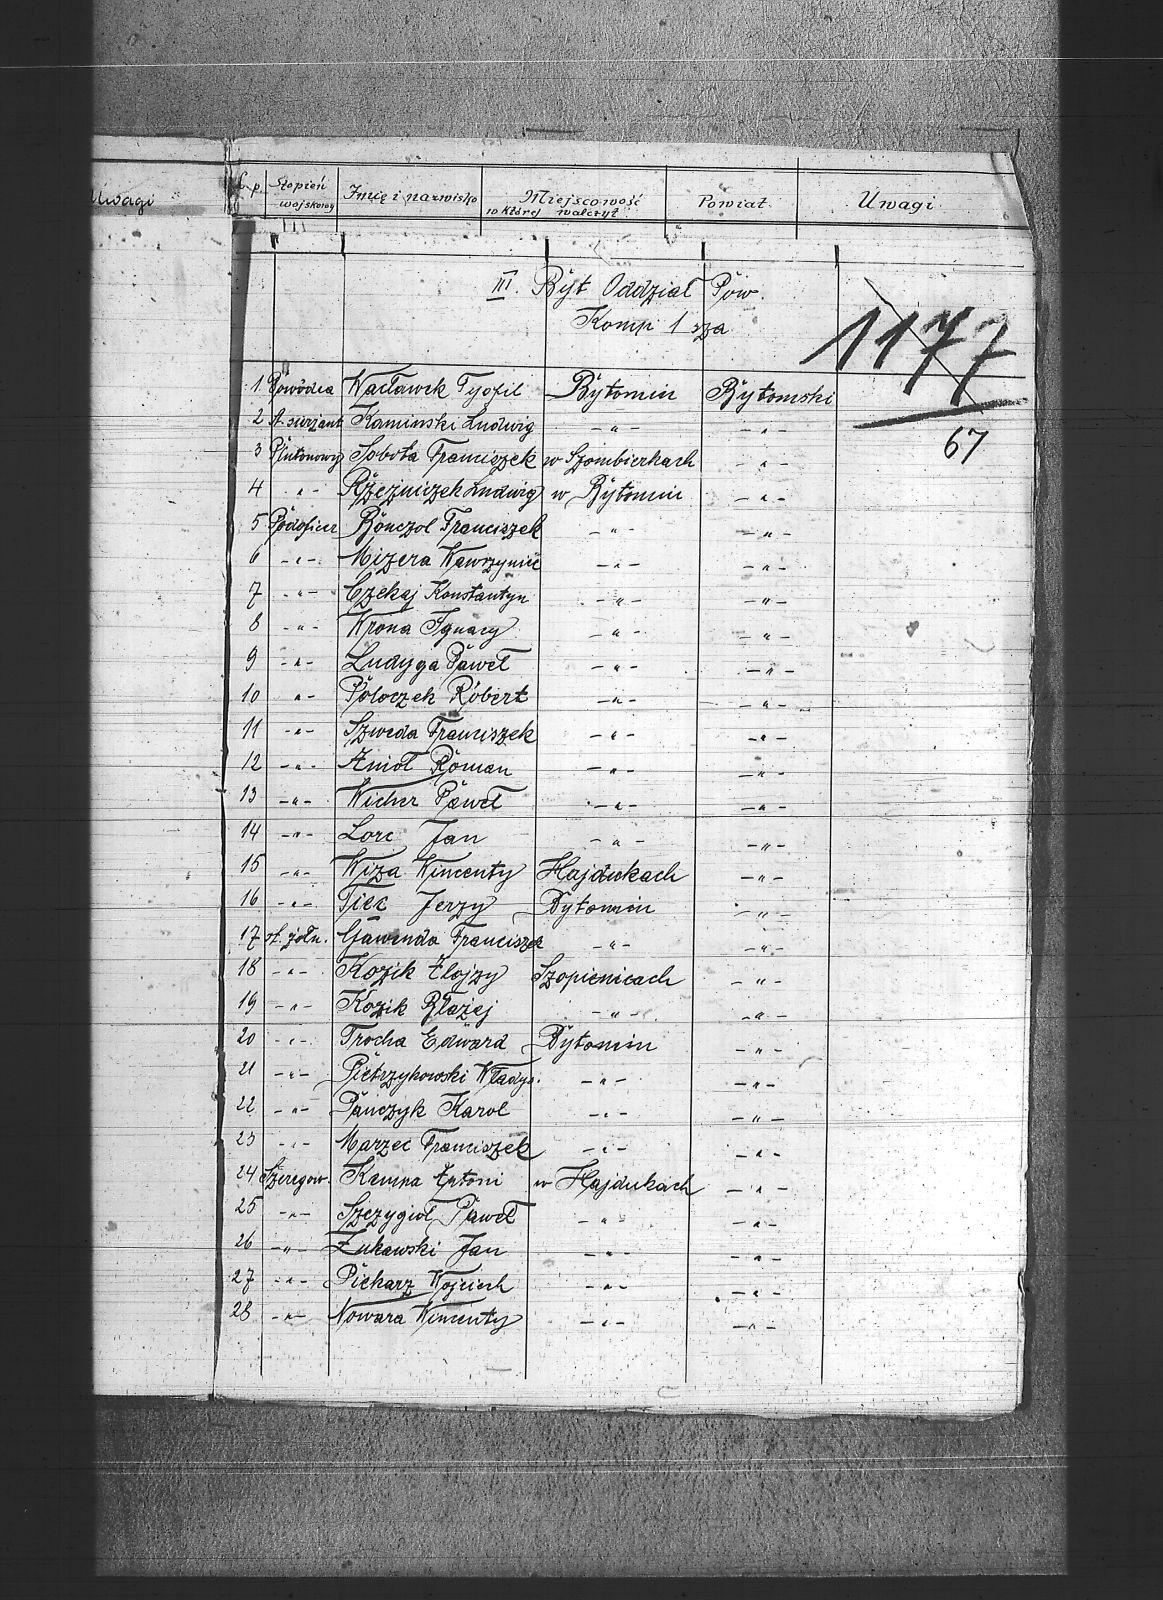 Uwagi
L.p. Stopień wojskowy Imię i nazwisko Miejscowość w której walczył Powiat Uwagi
III. Byt Oddział Pow.
Komp 1 sza
1177
67
1 Dowódca Wacławek Tyofil Bytomiu Bytomski
2 st. surżant Kaminski Ludwig -"- -"-
3 Plutonowy Sobota Franciszek w Szombierkach -"-
4 -"- Rzezniczek Ludwig w Bytomiu -"-
5 Podoficer Bönczol Franciszek -"- -"-
6 -"- Mizera Wawrzyniec -"- -"-
7 -"- Czekaj Konstantyn -"- -"-
8 -"- Wrona Ignacy -"- -"-
9 -"- Ludyga Paweł -"- -"-
10 -"- Poloczek Robert -"- -"-
11 -"- Szweda Franciszek -"- -"-
12 -"- Anioł Roman -"- -"-
13 -"- Wicher Paweł -"- -"-
14 -"- Lorc Jan -"- -"-
15 -"- Wiza Wincenty Hajdukach -"-
16 -"- Tiec Jerzy Bytomiu -"-
17 st. żołn. Gawenda Franciszek -"- -"-
18 -"- Kozik Alojzy Szopienicach -"-
19 -"- Kozik Błażej -"- -"-
20 -"- Trocha Edward Bytomiu -"-
21 -"- Pietrzykowski Władys. -"- -"-
22 -"- Pańczyk Karol -"- -"-
23 -"- Marzec Franciszek -"- -"-
24 Szeregow. Kanna Antoni w Hajdukach -"-
25 -"- Szczygioł Paweł -"- -"-
26 -"- Żukawski Jan -"- -"-
27 -"- Piekarz Wojciech -"- -"-
28 -"- Nowara Wincenty -"- -"-